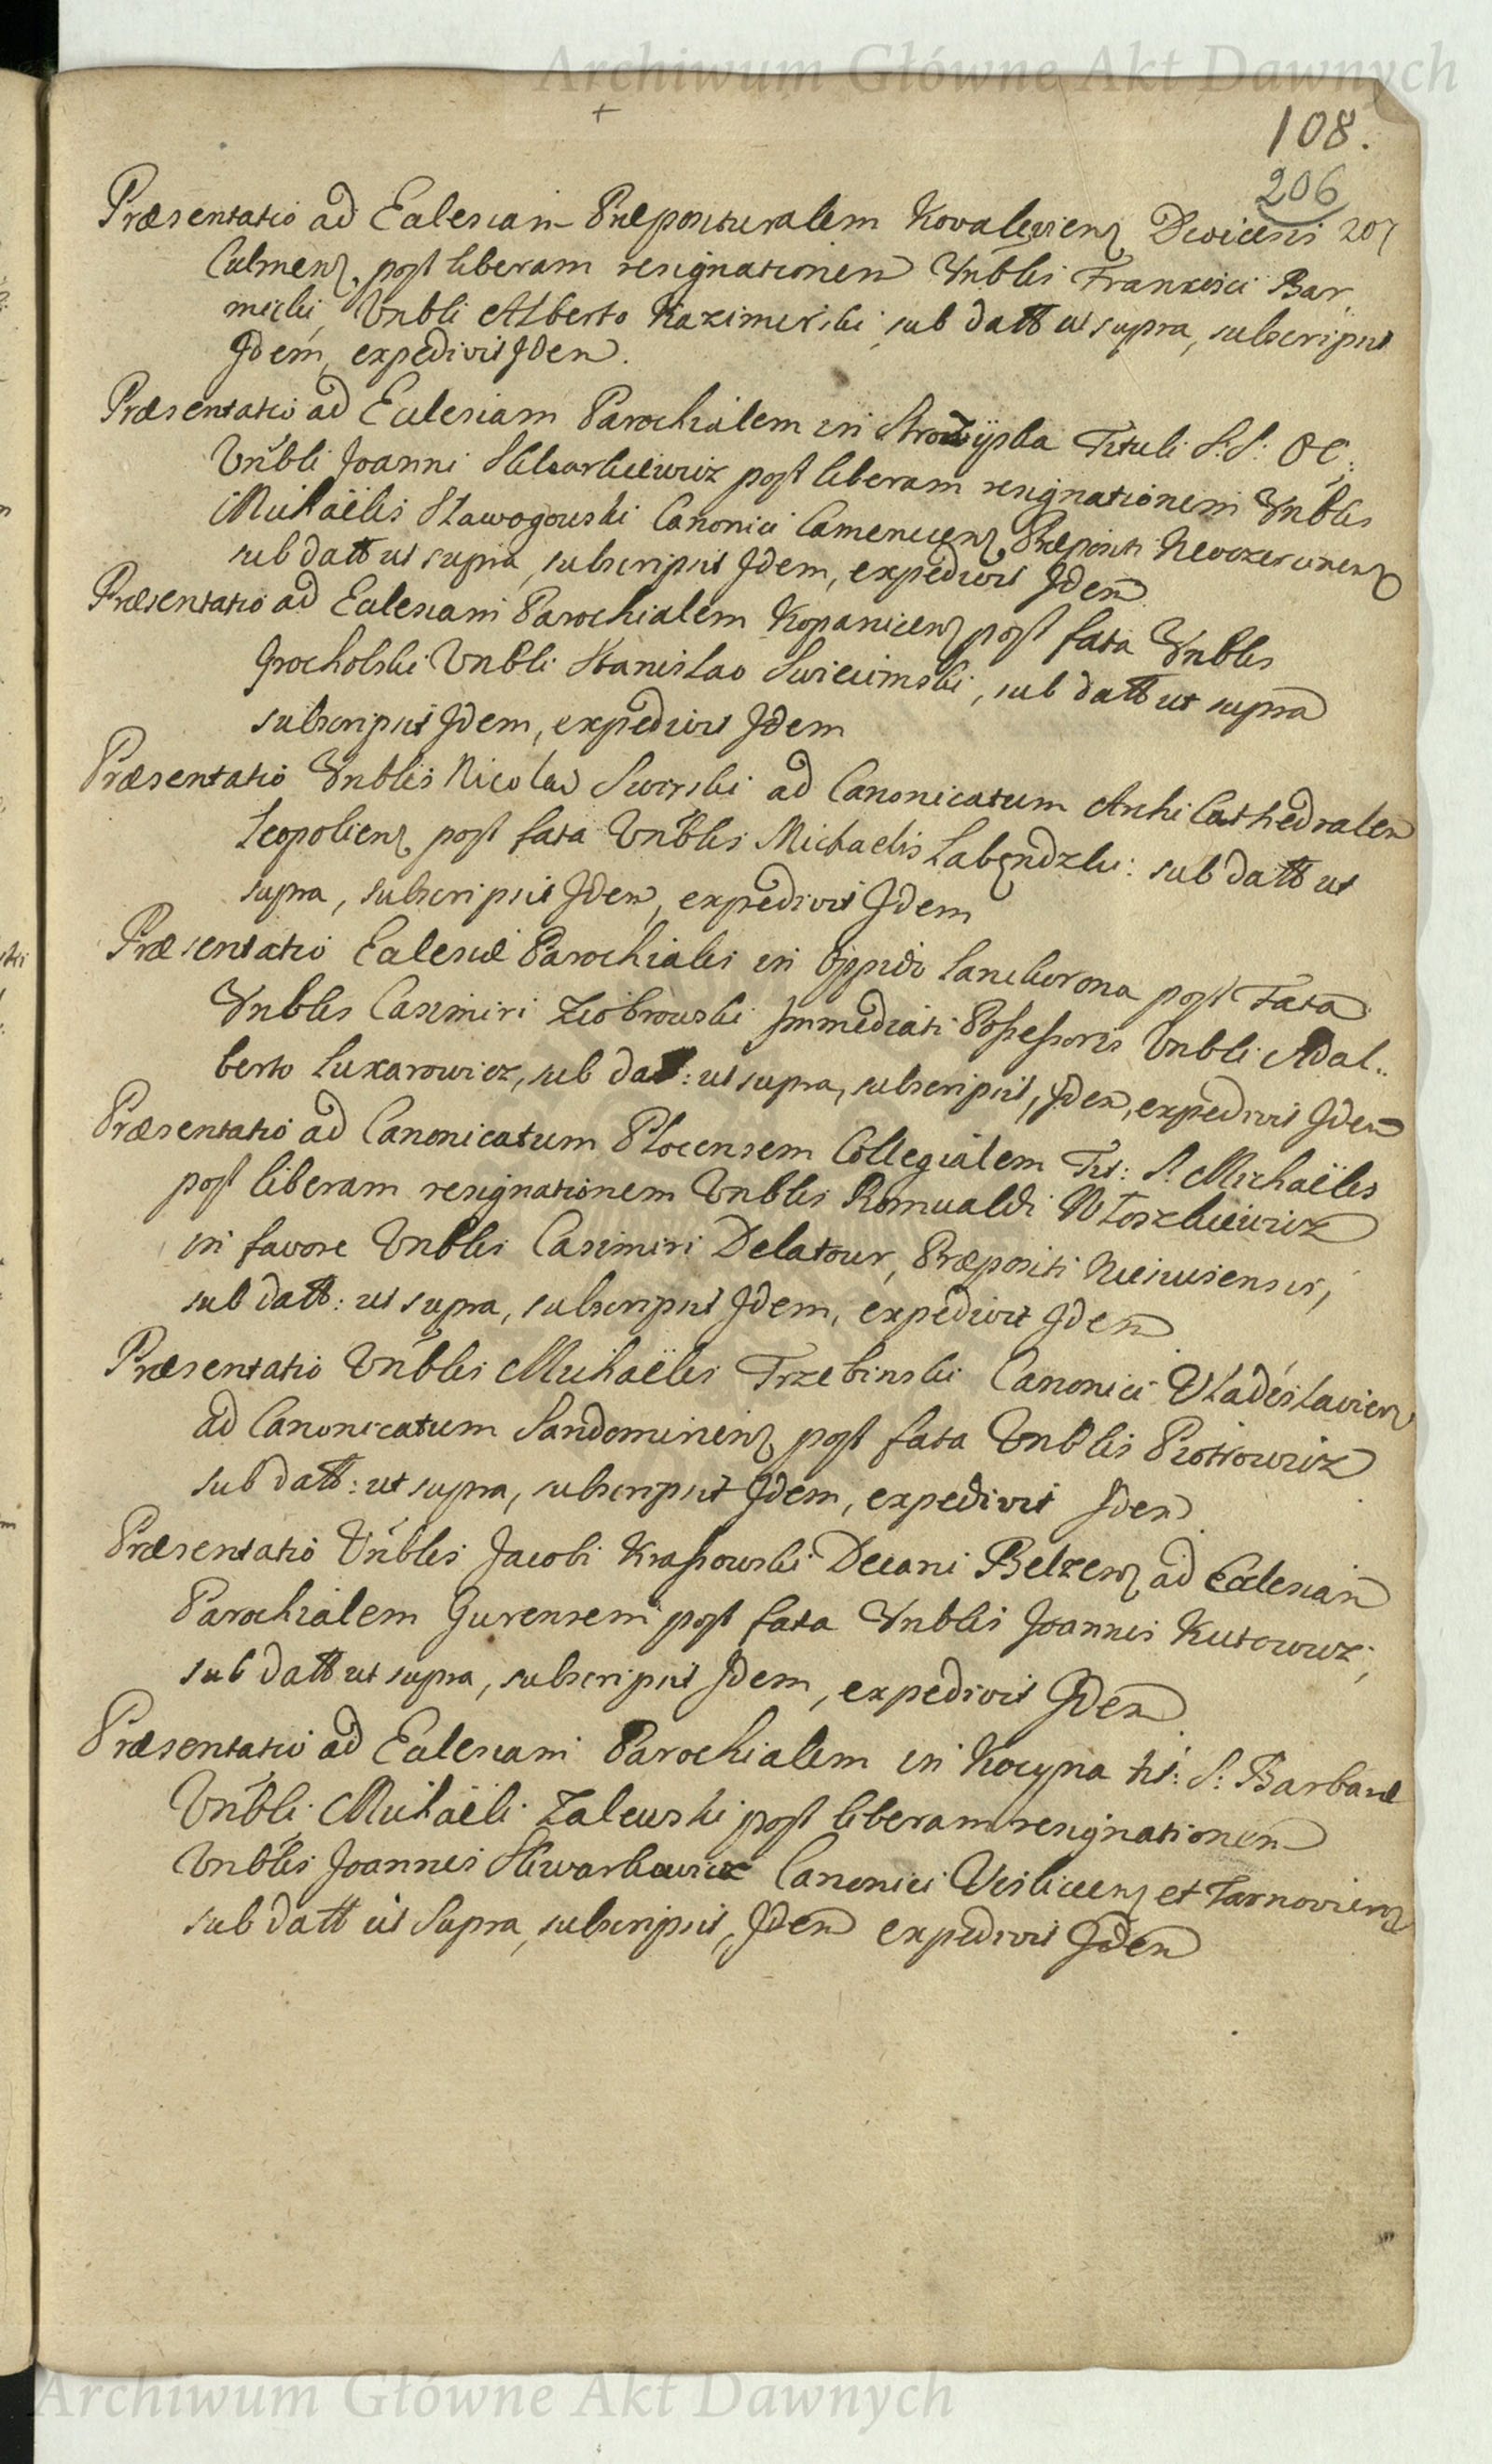 Archiwum Główne Akt Dawnych
108.
206
Præsentatio ad Ecclesiam Præposituralem Kovaleviens Dioicesis 207
Culmens, post liberam resignationem Vnblis Francisci Bar
Vnbli Alberto Kazimirski, sub datt ut supra, subscripsit
Idem, expedivit Idem.
Præsentatio ad Ecclesiam Parochialem in Tituli S: S: OO:
Vnbli Joanni post liberam resignationem Vnblis
Michaëlis Stawogorski Canonici Camenecens, Præpositi
sub datt ut supra, subscripsit Idem, expedivit Idem
Præsentatio ad Ecclesiam Parochialem Kopanicens post fata Vnblis
Grocholski Vnbli Stanislao Swiecimski, sub datt ut supra
subscripsit Idem, expedivit Idem
Præsentatio Vnblis Nicolai Swirski ad Canonicatum Archi Cathedralem
Leopoliens post fata Vnblis Michaelis Labendzki: sub datt ut
supra, subscripsit Idem, expedivit Idem
Præsentatio Ecclesiæ Parochialis in Oppido Lanckorona post Fata
Vnblis Casimiri Ziobrowski Immediati Possessoris Vnbli Adal..
berto Luxarowicz, sub dat: ut supra, subscripsit, Idem, expedivit Idem
Præsentatio ad Canonicatum Plocensem Collegialem Tit: S. Michaëlis
post liberam resignationem Vnblis Romualdi Wloszkiewicz
in favore Vnblis Casimiri Delatour, Præpositi
sub datt: ut supra, subscripsit Idem, expedivit Idem
Præsentatio Vnblis Michaëlis Trzebinski Canonici Vladislaviens
ad Canonicatum Sandomiriens post fata Vnblis Piotrowicz
sub datt: ut supra, subscripsit Idem, expedivit Idem
Præsentatio Vnblis Jacobi Krassowski Decani Belzens ad Ecclesiam
Parochialem Gurensem post fata Vnblis Joannis Kutowicz,
sub datt ut supra, subscripsit Idem, expedivit Idem
Præsentatio ad Ecclesiam Parochialem in Kocyna tit: S: Barbaræ
Vnbli Michaëli Zalewski post liberam resignationem
Vnblis Joannis Canonici Visliciens et Tarnoviens
sub datt ut Supra, subscripsit, Idem expedivit Idem
Archiwum Główne Akt Dawnych